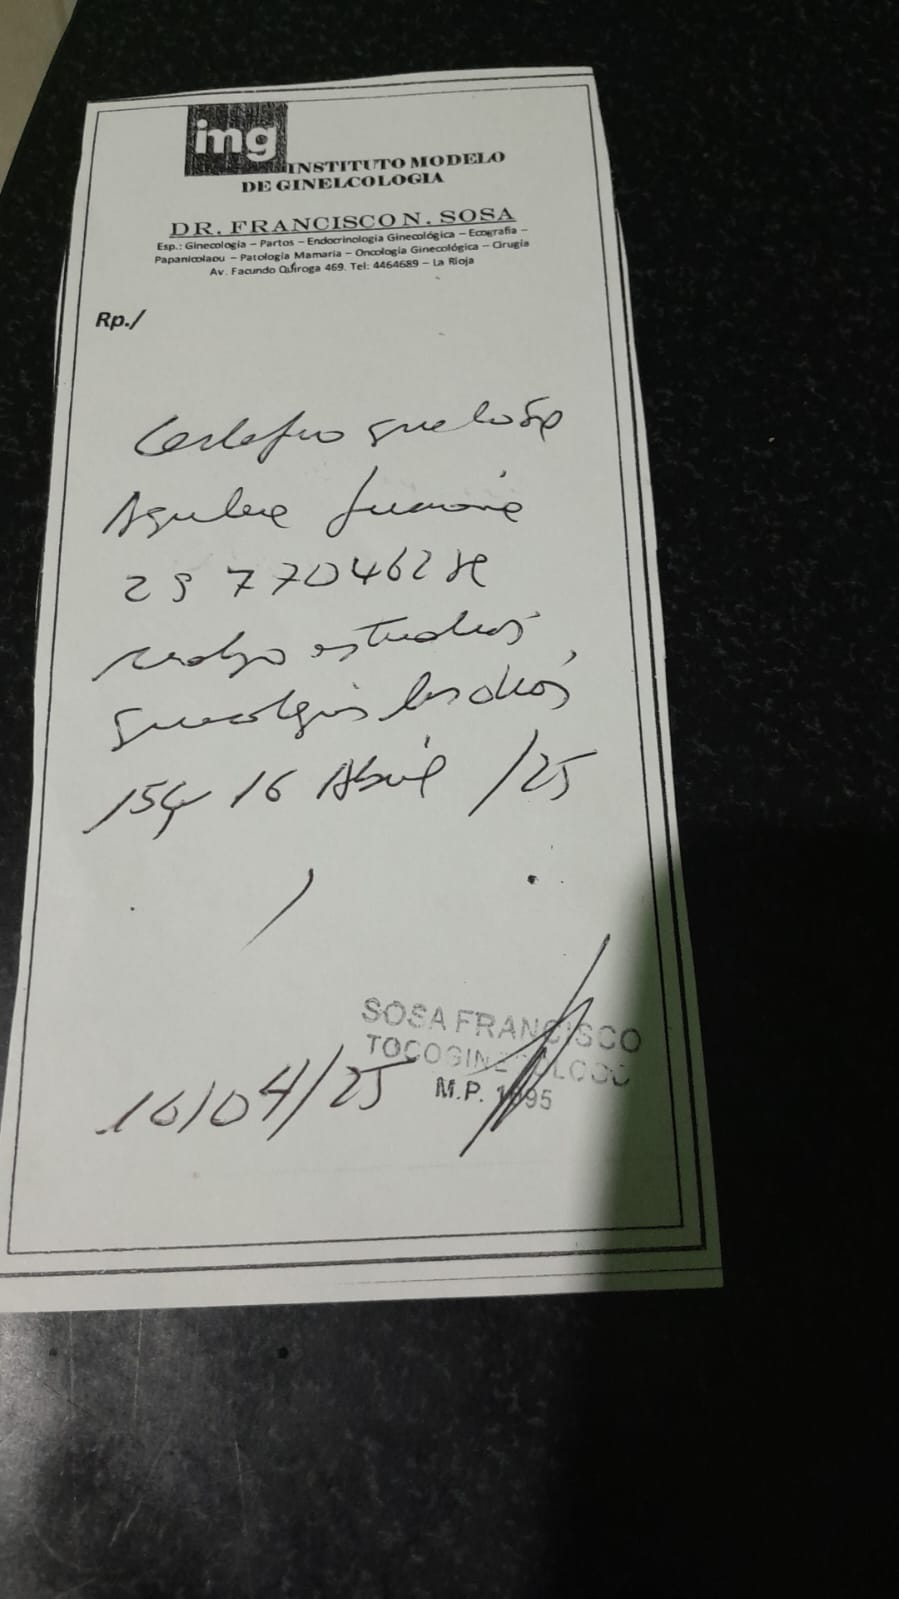 img
INSTITUTO MODELO
DE GINELCOLOGIA
DR. FRANCISCO N. SOSA
Esp.: Ginecología – Partos – Endocrinología Ginecológica – Ecografia –
Papanicolaou – Patología Mamaria – Oncología Ginecológica – Cirugia
Av. Facundo Quiroga 469. Tel: 4464689 – La Rioja
Rp./
Certifico que la Sra
se
estudios
los días
15 y 16 Abril /25
16/04/25
SOSA FRANCISCO
TOCOGINECOLOGO
M.P.